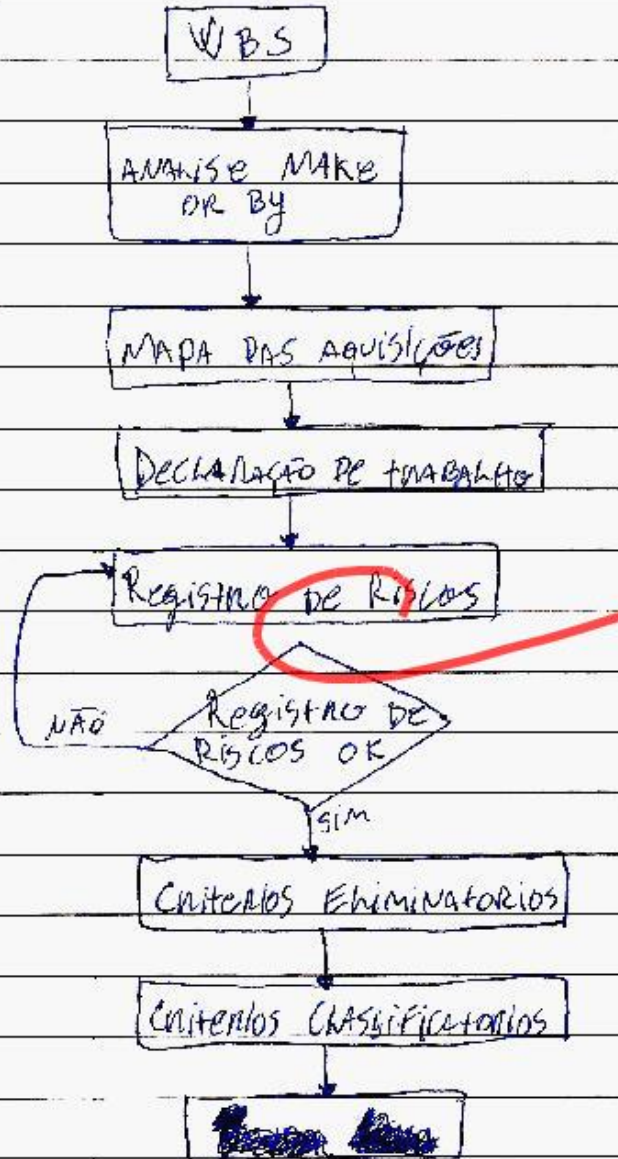 WBS
ANALISE MAKE
OR BY
MAPA DAS AQUISIÇÕES
DECLARAÇÃO DE TRABALHO
Registro DE Riscos
NÃO
Registro DE
RISCOS OK
SIM
Criterios Eliminatorios
Criterios Classificatorios